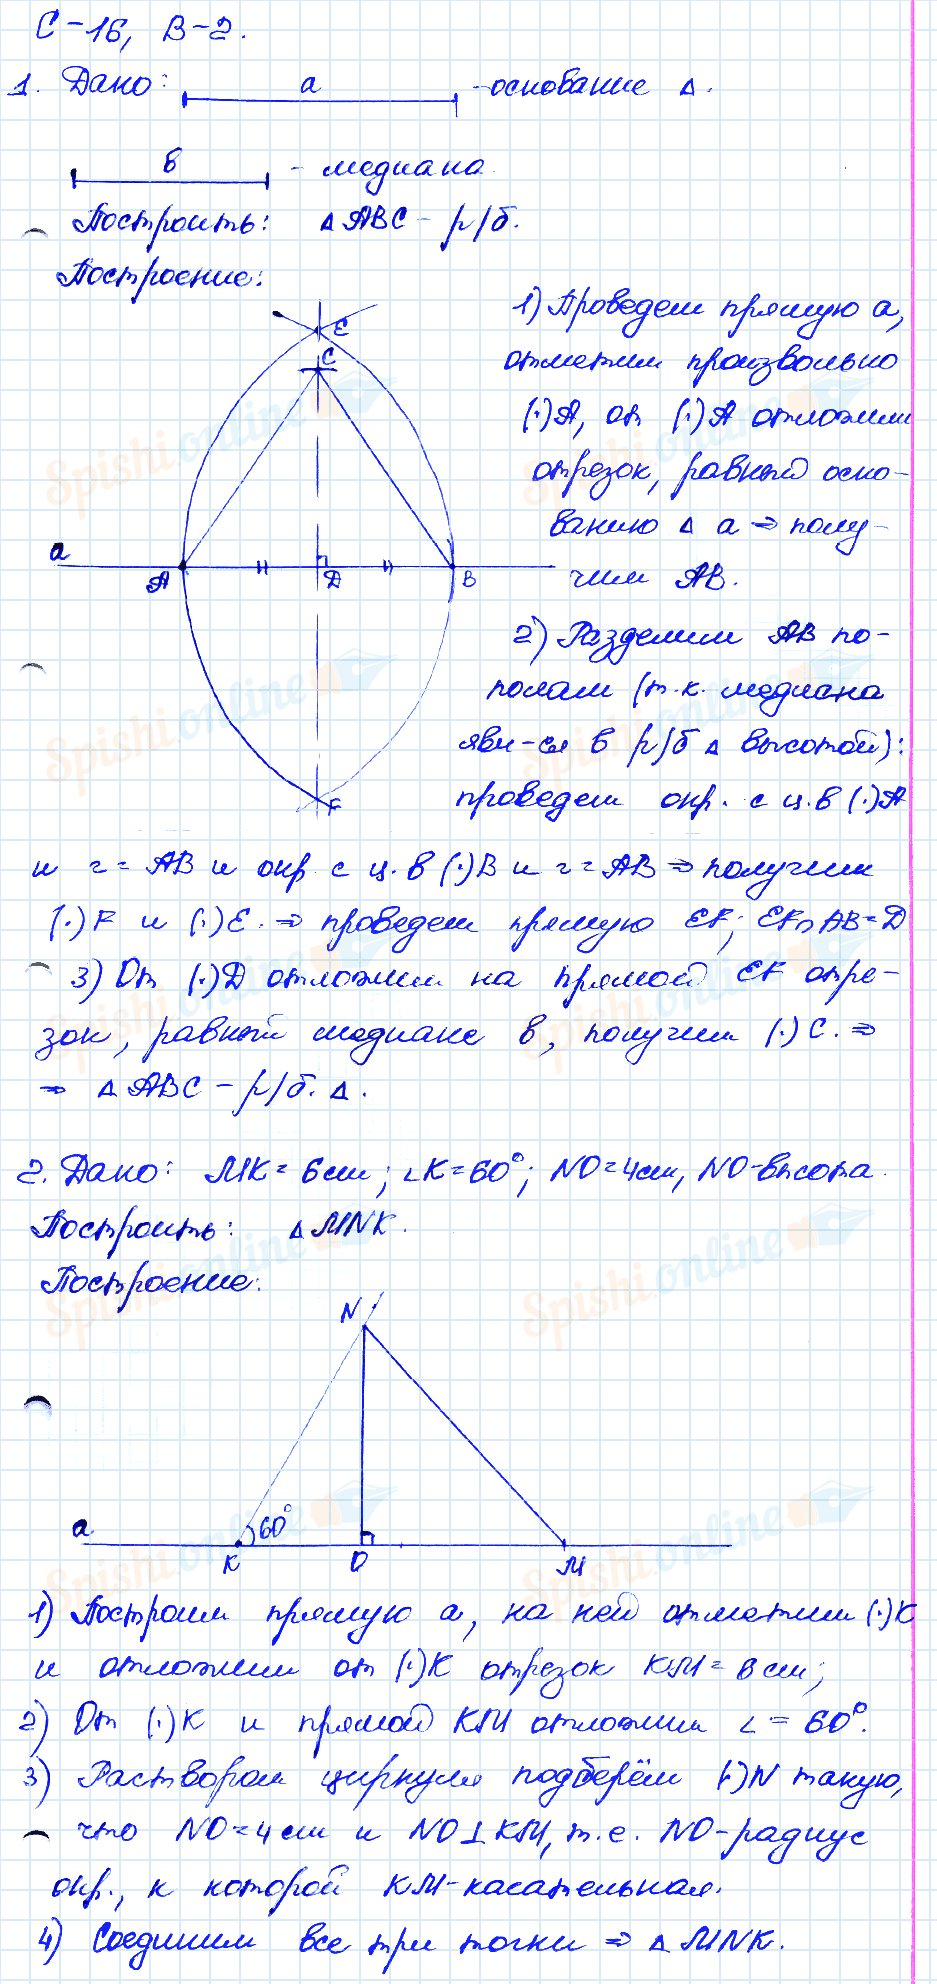 С-16, В-2.
1. Дано: a - основание Δ.
в - медиана
Построить: Δ ABC - р/б.
Построение:
E
C
a A D B
F
1) Проведем прямую a,
отметим произвольно
(·)A, от (·)A отложим
отрезок, равный осно-
ванию Δ a ⇒ полу-
чим AB.
2) Разделим AB по-
полам (т.к. медиана
явл-ся в р/б Δ высотой):
проведем окр. с ц. в (·)A
и r = AB и окр с ц. в (·)B и r = AB ⇒ получим
(·)F и (·)E. ⇒ проведем прямую EF; EF∩AB=D
3) От (·)D отложим на прямой EF отре-
зок, равный медиане в, получим (·)C. ⇒
⇒ Δ ABC - р/б. Δ.
2. Дано: MK = 6см; ∠K=60°; NO=4см, NO-высота.
Построить: Δ MNK.
Построение:
N
a 60°
K O M
1) Построим прямую a, на ней отметим (·)K
и отложим от (·)K отрезок KM = 6см;
2) От (·)K и прямой KM отложим ∠ = 60°.
3) Раствором циркуля подберём (·)N такую,
что NO = 4см и NO⊥KM, т.е. NO-радиус
окр., к которой KM-касательная.
4) Соединим все три точки ⇒ Δ MNK.
Spishi online
Spishi online
Spishi online
Spishi online
Spishi online
Spishi online
Spishi online
Spishi online
Spishi online
Spishi online